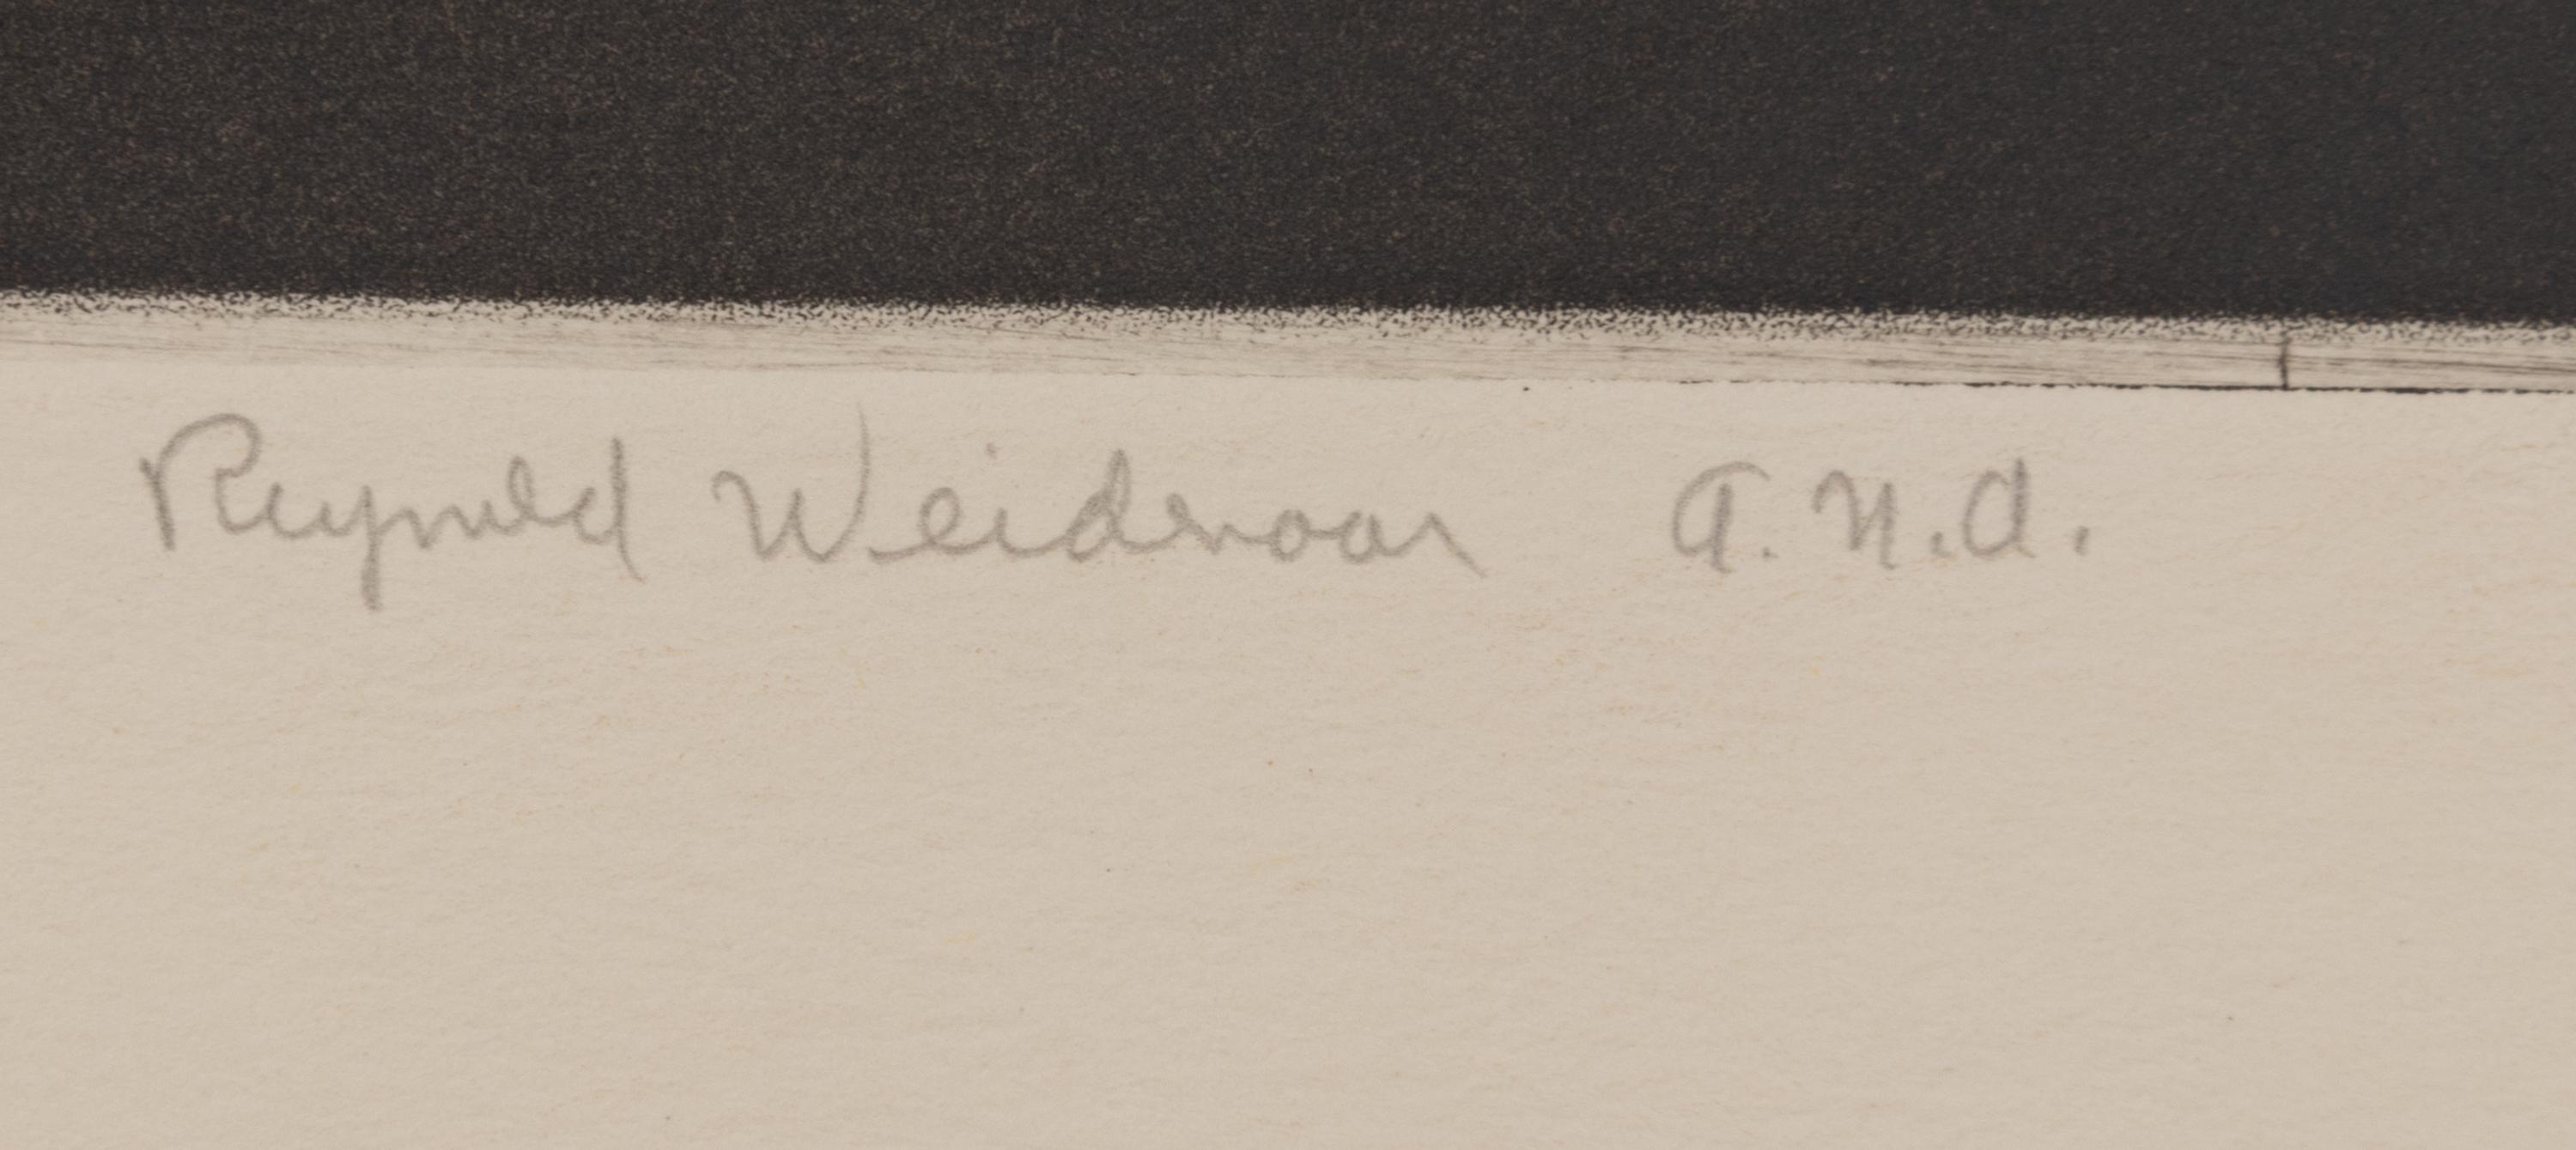 Reynold Weidenaar A.N.A.